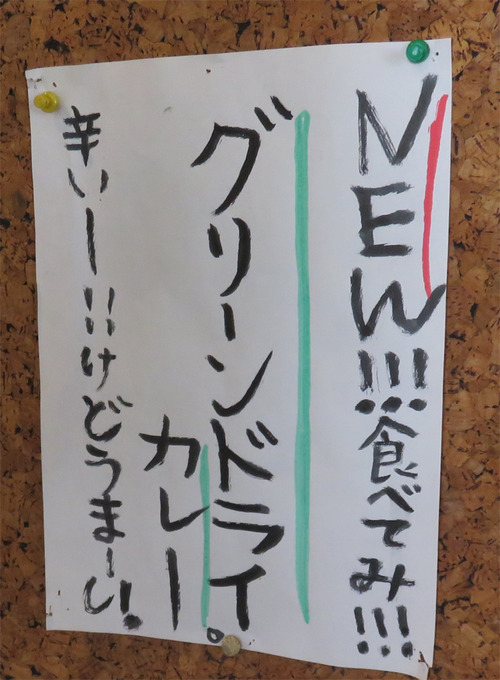 NEW!!!食べてみ!!!
グリーンドライ
カレー。
辛いー!!けどうまーし!